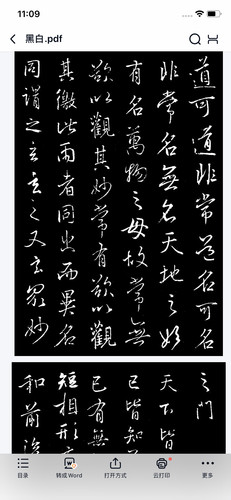 11:09
黑白.pdf
道可道非常道名可名
非常名無名天地之始
有名萬物之母故常無
欲以觀其妙常有欲以觀
其徼此兩者同出而異名
同謂之玄玄之又玄眾妙
之門
天下皆
已皆知
已有無
短相形
和前
目录
转成Word
打开方式
云打印
更多